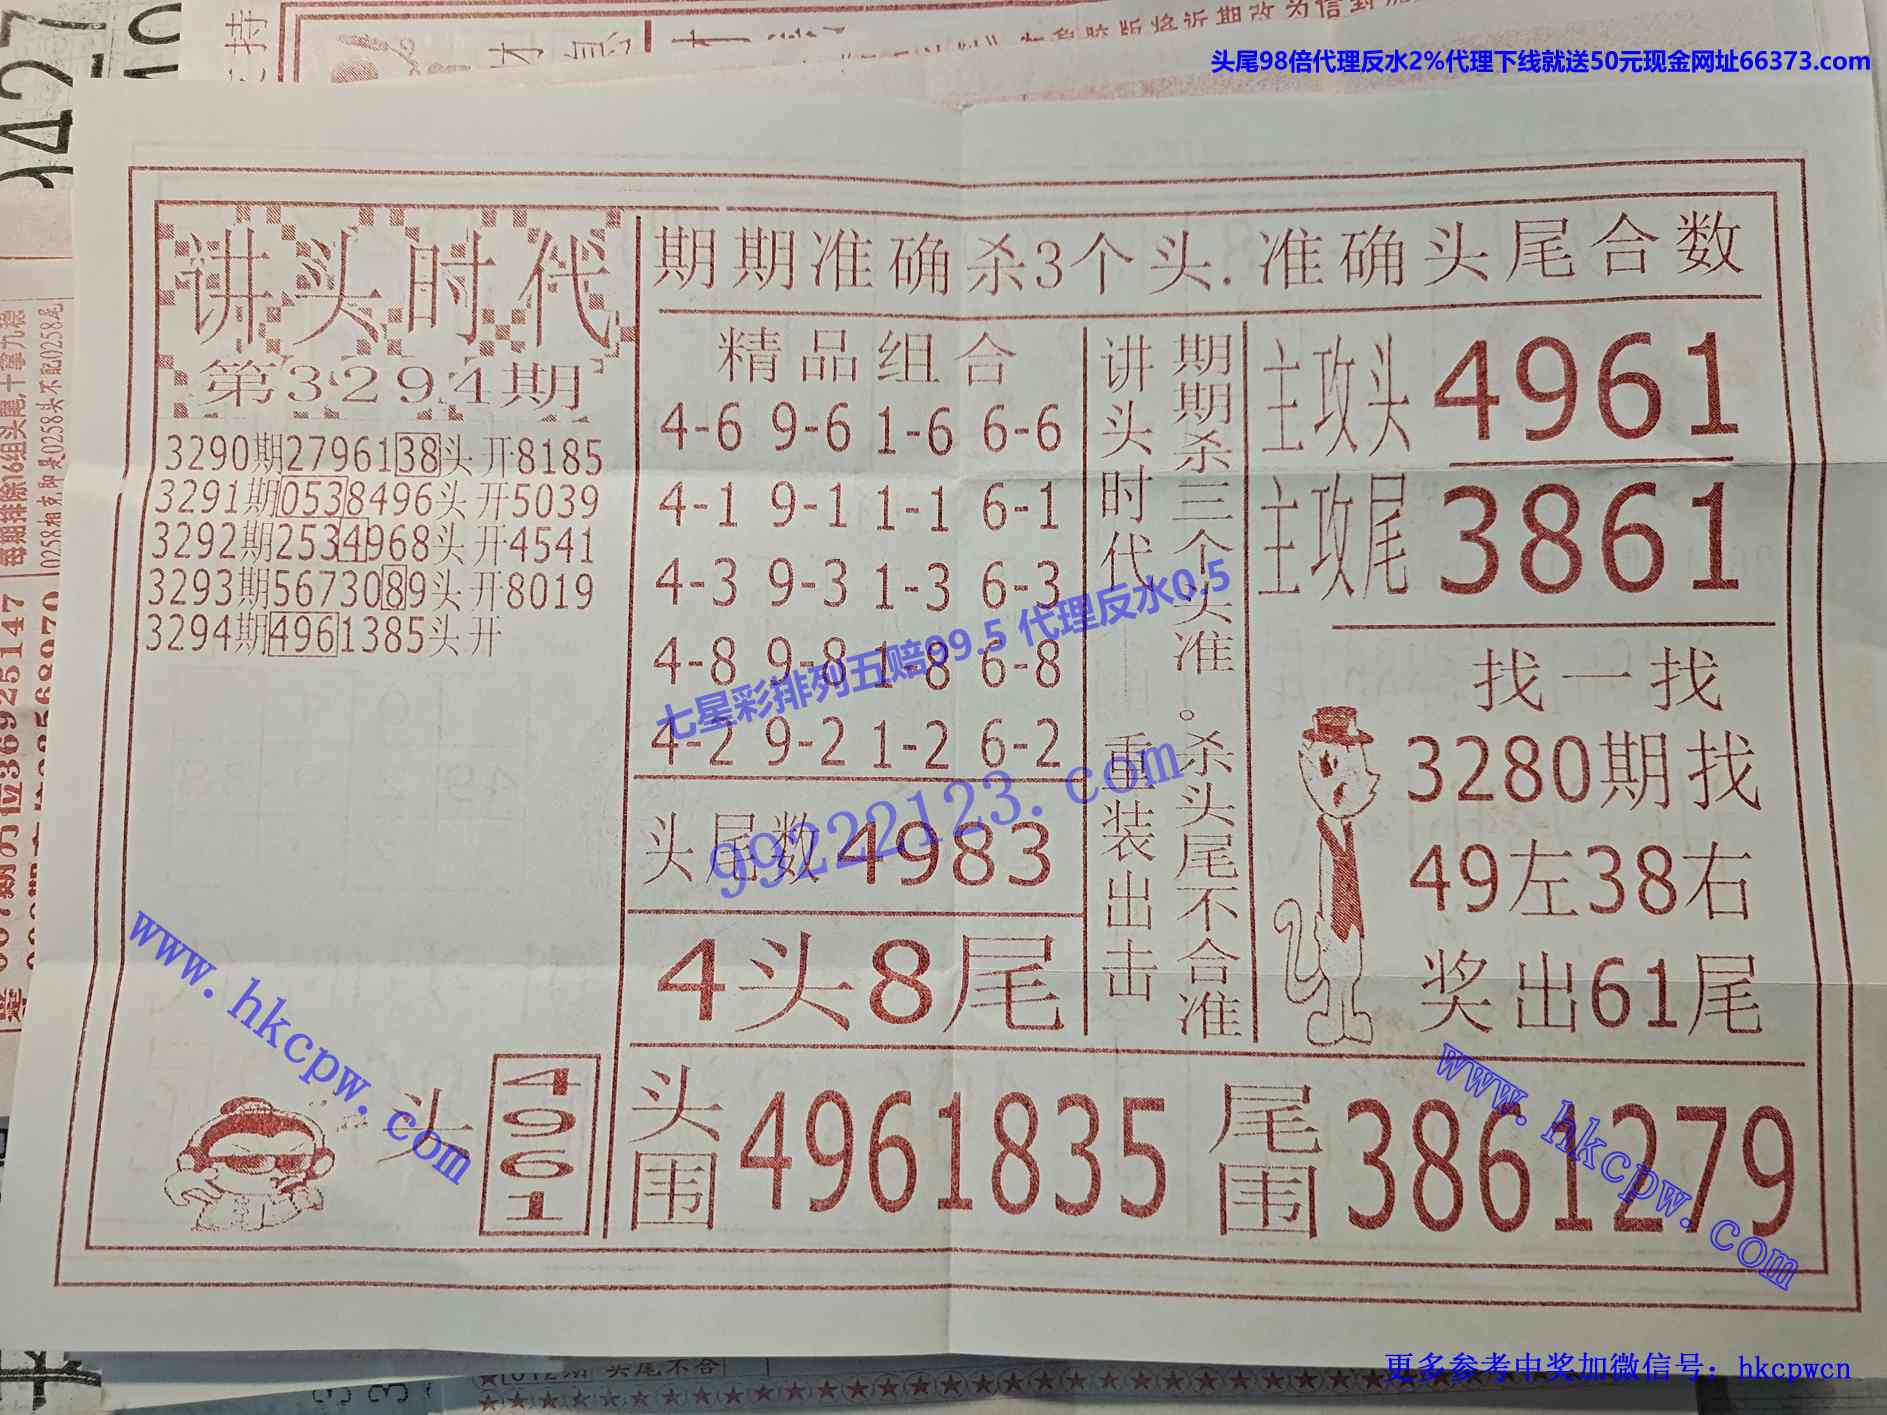 头尾98倍代理反水2%代理下线就送50元现金网址66373.com
讲头时代
第3294期
3290期2796138头开8185
3291期0538496头开5039
3292期2534968头开4541
3293期5673089头开8019
3294期4961385头开
头
4961
期期准确杀3个头.准确头尾合数
精品组合
4-6 9-6 1-6 6-6
4-1 9-1 1-1 6-1
4-3 9-3 1-3 6-3
4-8 9-8 1-8 6-8
4-2 9-2 1-2 6-2
头尾数4983
4头8尾
讲头时代 重装出击
期期杀三个头准。杀头尾不合准
主攻头 4961
主攻尾 3861
找一找
3280期找
49左38右
奖出61尾
头围 4961835
尾围 3861279
七星彩排列五赔99.5 代理反水0.5
99222123.com
www.hkcpw.com
www.hkcpw.com
更多参考中奖加微信号：hkcpwcn
每期排除16组头尾,十拿九稳
头尾不合